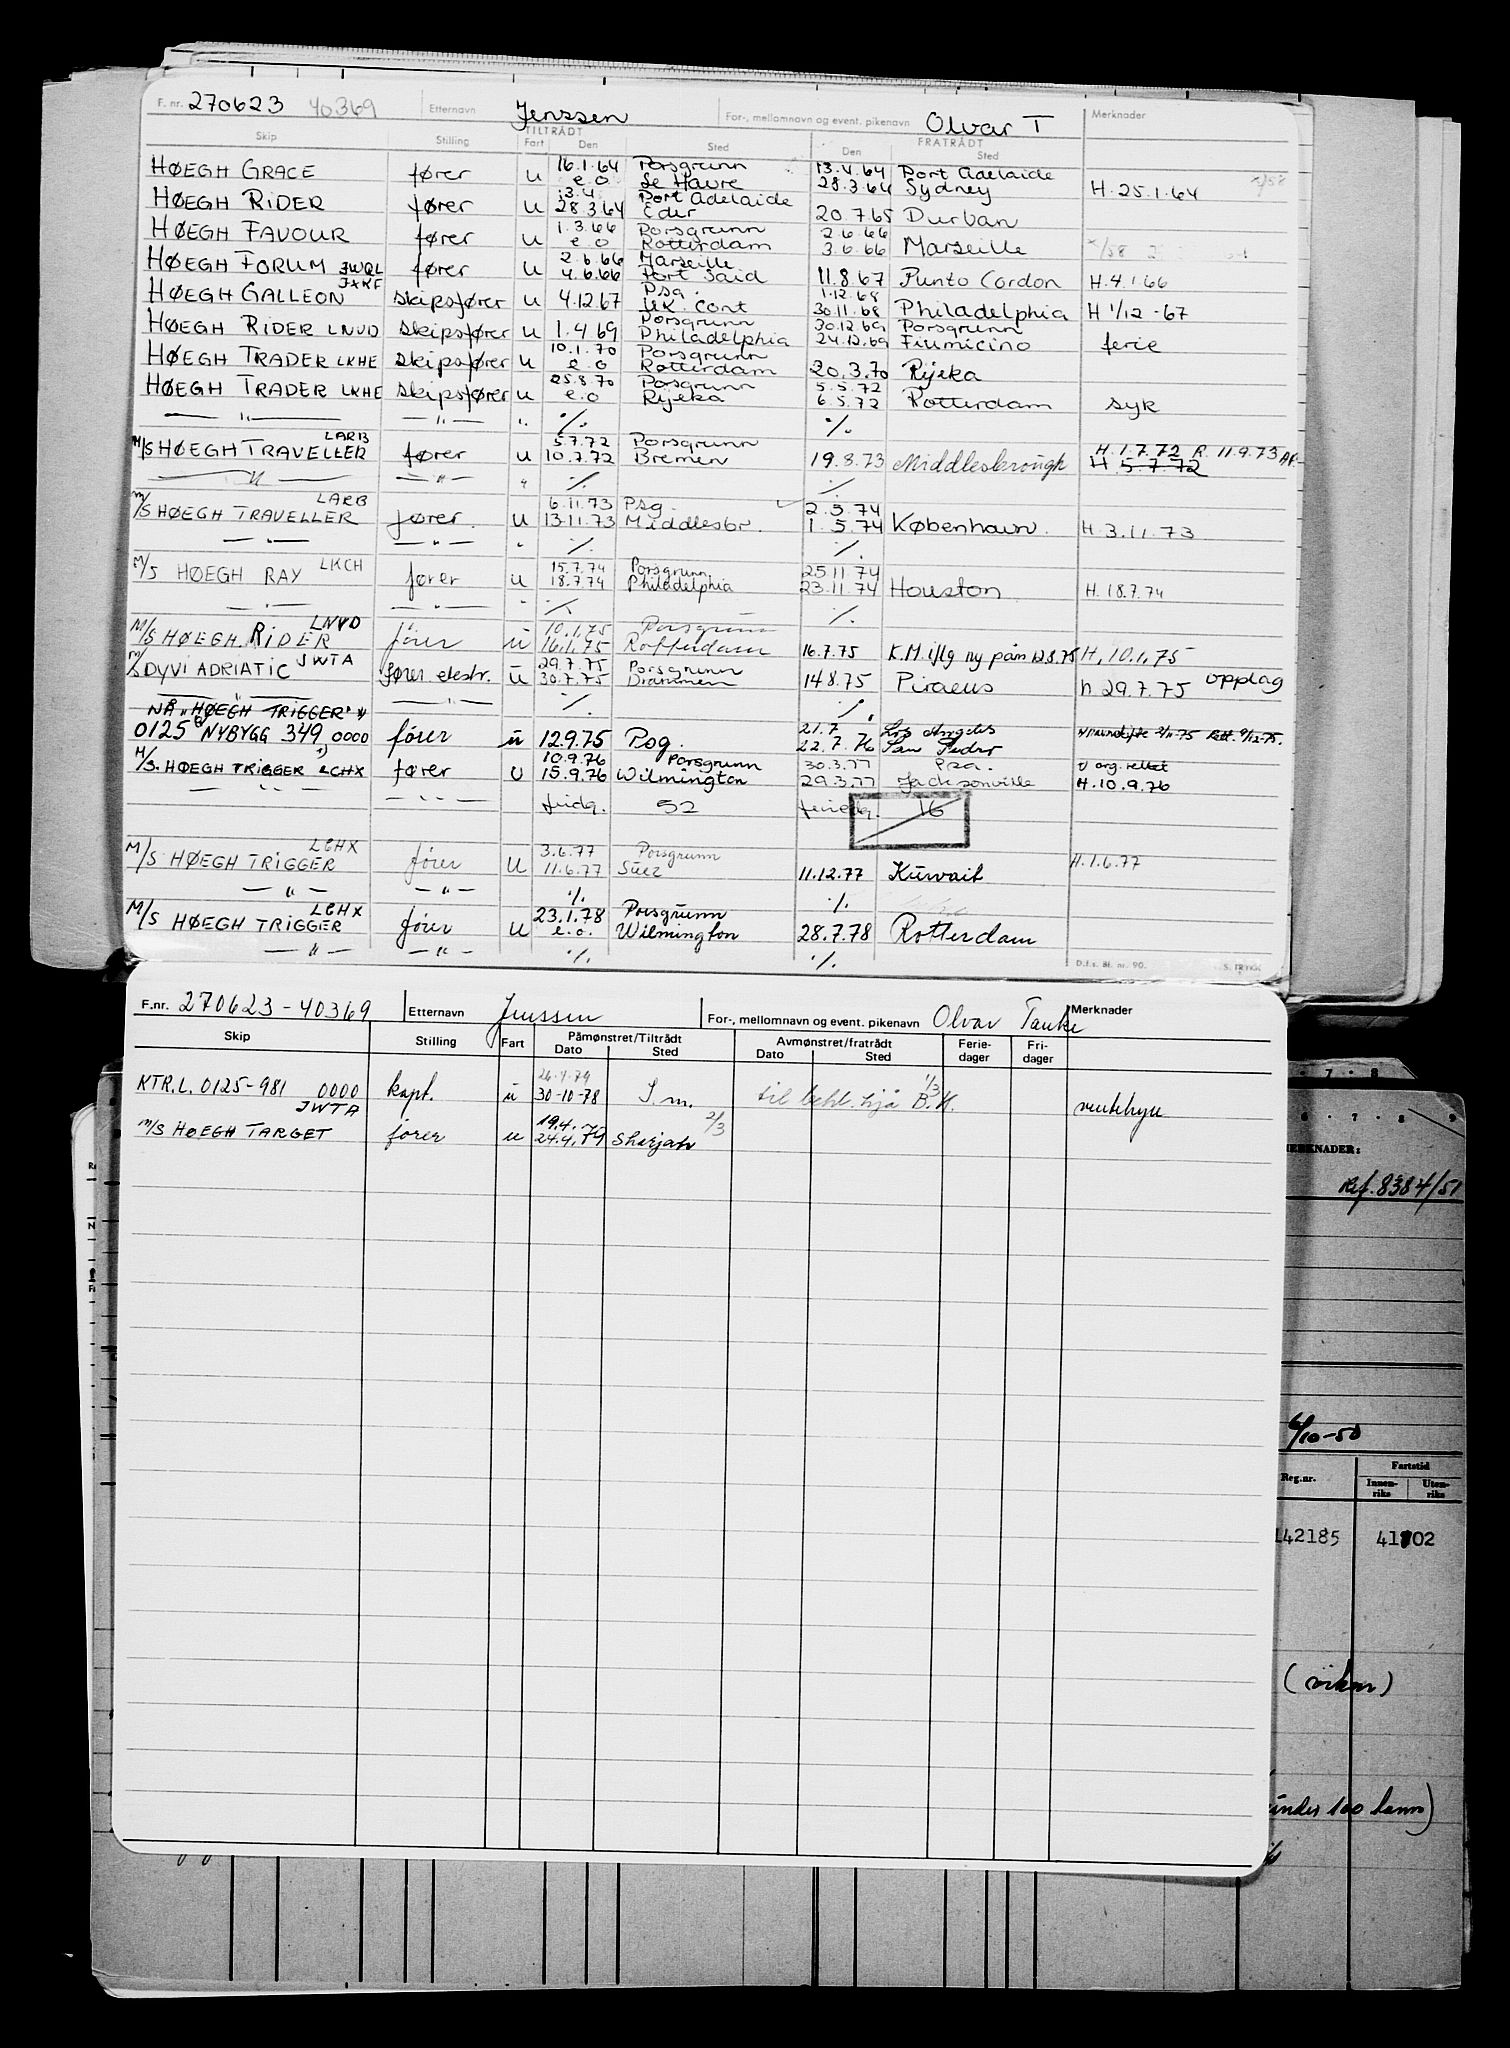 F. nr. 270623 40369 Etternavn Jenssen For-, mellomnavn og event. pikenavn Olvar T Merknader
Skip Stilling TILTRÅDT Fart Den Sted FRATRÅDT Den Sted
HØEGH GRACE fører u 16.1.64 Porsgrunn 13.4.64 Port Adelaide
e.o Le Havre 28.3.64 Sydney H. 25.1.64
HØEGH RIDER fører u 13.4. Port Adelaide
28.3.64 20.7.65 Durban
HØEGH FAVOUR fører u 1.3.66 Porsgrunn 2.6.66
e.o Rotterdam 3.6.66 Marseille
HØEGH FORUM JWQL fører u 2.6.66 Marseille
4.6.66 Port Said 11.8.67 Punto Cordon H. 4.1.66
HØEGH GALLEON skipsfører u 4.12.67 Psg. 1.12.68
UK. Cont 30.11.68 Philadelphia H 1/12-67
HØEGH RIDER LNVD skipsfører u 1.4 69 Porsgrunn 30.12.69 Porsgrunn
Philadelphia 24.12.69 Fiumicino ferie
HØEGH TRADER LKHE skipsfører u 10.1.70 Porsgrunn
e.o Rotterdam 20.3.70 Rijeka
HØEGH TRADER LKHE skipsfører u 25.8.70 Porsgrunn 5.5.72
e.o Rijeka 6.5.72 Rotterdam syk
— " — — " — " ./. ./.
M/S HØEGH TRAVELLER LARB fører u 5.7.72 Porsgrunn H. 1.7.72 R. 11.9.73
10.7.72 Bremen 19.8.73 Middlesbrough H. 5.7.72
— " — — " — " ./. ./.
M/S HØEGH TRAVELLER LARB fører u 6.11.73 Psg. 2.5.74
13.11.73 Middlesbr. 1.5.74 København H. 3.11.73
— " — — " — " ./. ./.
M/S HØEGH RAY LKCH fører u 15.7.74 Porsgrunn 25.11.74
18.7.74 Philadelphia 23.11.74 Houston H. 18.7.74
— " — — " — " ./. ./.
M/S HØEGH RIDER LNVD fører u 10.1.75 Porsgrunn
16.1.75 Rotterdam 16.7.75 K.M iflg ny påm 12.8.75 H. 10.1.75
M/S DYVI ADRIATIC JWTA fører ekstr. u 29.7.75 Porsgrunn
30.7.75 Drammen 14.8.75 Piraeus h 29.7.75 opplag
NÅ "HØEGH TRIGGER" — " — ./. ./.
0125 NYBYGG 349 0000 fører u 12.9.75 Psg. 21.7 Los Angeles
22.7.76 San Pedro
M/S. HØEGH TRIGGER LCHX fører u 10.9.76 Porsgrunn 30.3.77 Psg.
15.9.76 Wilmington 29.3.77 Jacksonville H. 10.9.76
— " — — " — fridg. 52 feriedg. 16
M/S HØEGH TRIGGER LCHX fører u 3.6.77 Porsgrunn H. 1.6.77
11.6.77 Suez 11.12.77 Kuwait
— " — — " — ./. ./.
M/S HØEGH TRIGGER LCHX fører u 23.1.78 Porsgrunn
e.o. Wilmington 28.7.78 Rotterdam
— " — — " — ./. ./.
D.f.s. Bl. nr. 90. S. TRYKK
F.nr. 270623-40369 Etternavn Jenssen For-, mellomnavn og event. pikenavn Olvar Tanke Merknader
Skip Stilling Fart Påmønstret/Tiltrådt Dato Sted Avmønstret/fratrådt Dato Sted Ferie-dager Fri-dager
KTR.L. 0125-981 0000 kapt. u 30-10-78 S.m. til beh. hjå B.H. 1/3 ventehyre
M/S HØEGH TARGET JWTA fører u 19.4.
24.4.79 Sharjah 2/3
7 8
6 7 8 9
MERKNADER:
Ref. 8384/51
6/10-50
Reg.nr. Fartstid
Innen-riks Uten-riks
142185 41802
(vikar)
under 100 tonn)